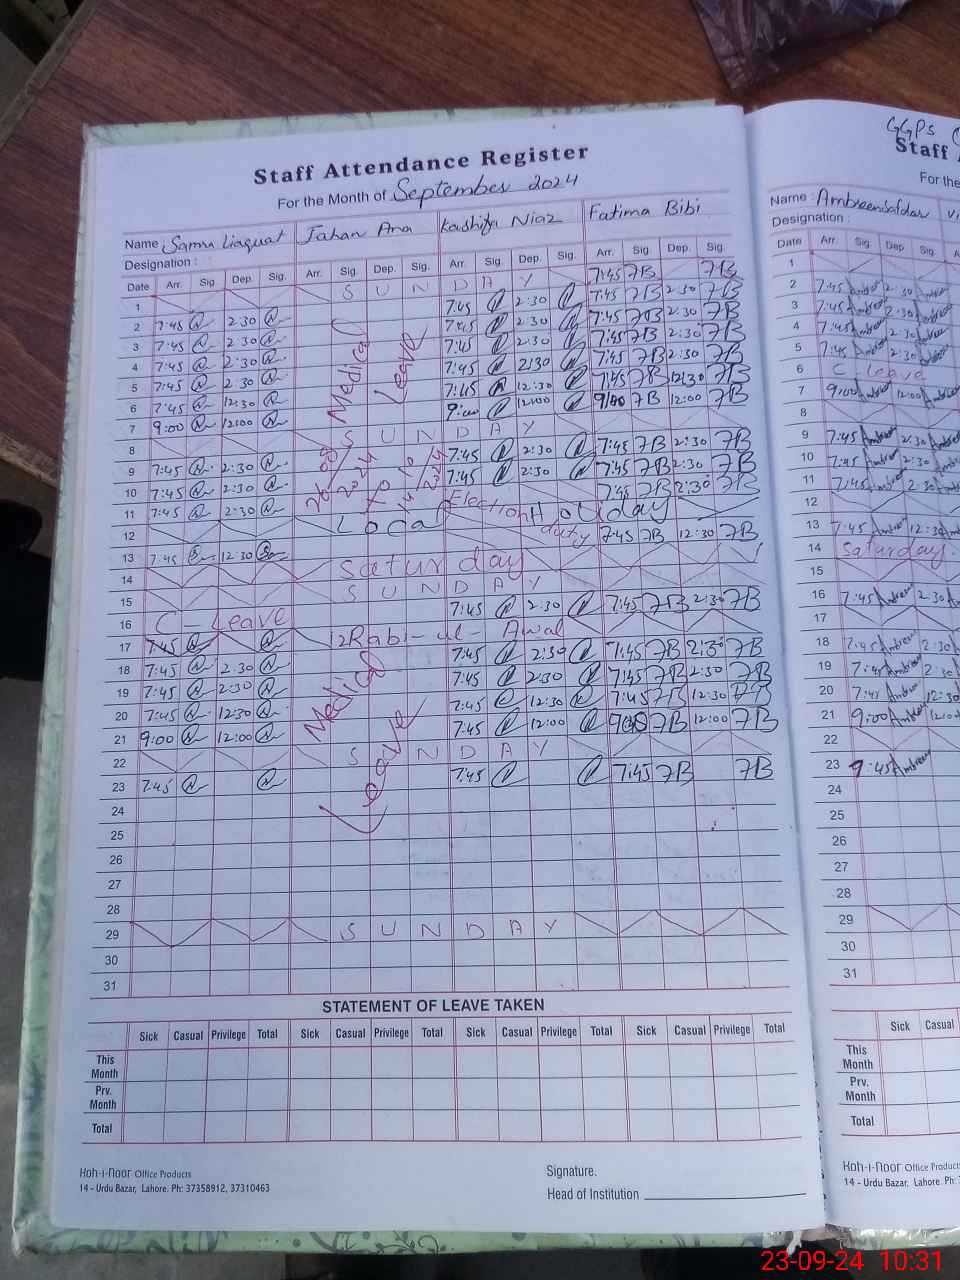 GGPS
Staff Attendance Register
Staff
For the Month of September 2024
For the
Name Samra Liaquat Jahan Ara Kashifa Niaz Fatima Bibi
Name : Ambreen Safdar
Designation :
Designation :
Date Arr. Sig. Dep. Sig. Arr. Sig. Dep. Sig. Arr. Sig. Dep. Sig. Arr. Sig. Dep. Sig.
Date Arr. Sig. Dep. Sig.
1 S U N D A Y 7:45 FB FB
2 7:45 2:30 7:45 2:30 7:45 FB 2:30 FB
3 7:45 2:30 7:45 2:30 7:45 FB 2:30 FB
4 7:45 2:30 7:45 2:30 7:45 FB 2:30 FB
5 7:45 2:30 7:45 2:30 7:45 FB 2:30 FB
6 7:45 12:30 7:45 12:30 7:45 FB 12:30 FB
7 9:00 12:00 12:00 9:00 FB 12:00 FB
Medical Leave
8 S U N D A Y
9 7:45 2:30 7:45 2:30 7:45 FB 2:30 FB
10 7:45 2:30 7:45 2:30 7:45 FB 2:30 FB
11 7:45 2:30 Election duty 7:45 FB 2:30 FB
2024 to
12 Local Holiday
13 7:45 12:30 7:45 FB 12:30 FB
14 Saturday
15 S U N D A Y
16 C - Leave 7:45 2:30 7:45 FB 2:30 FB
17 7:45 12 Rabi-ul-Awal
18 7:45 2:30 7:45 2:30 7:45 FB 2:30 FB
19 7:45 2:30 7:45 2:30 7:45 FB 2:30 FB
20 7:45 12:30 7:45 12:30 7:45 FB 12:30 FB
21 9:00 12:00 7:45 12:00 9:00 FB 12:00 FB
Medical Leave
22 S U N D A Y
23 7:45 7:45 7:45 FB FB
24
25
26
27
28
29 S U N D A Y
30
31
1
2 7:45 Ambreen 2:30 Ambreen
3 7:45 Ambreen 2:30 Ambreen
4 7:45 Ambreen 2:30 Ambreen
5 7:45 Ambreen 2:30 Ambreen
6 C Leave
7 9:00 Ambreen 12:00 Ambreen
8
9 7:45 Ambreen 2:30 Ambreen
10 7:45 Ambreen 2:30 Ambreen
11 7:45 Ambreen 2:30 Ambreen
12
13 7:45 Ambreen 12:30
14 Saturday
15
16 7:45 Ambreen 2:30
17
18 7:45 Ambreen 2:30
19 7:45 Ambreen 2:30
20 7:45 Ambreen 12:30
21 9:00 Ambreen
22
23 7:45 Ambreen
24
25
26
27
28
29
30
31
STATEMENT OF LEAVE TAKEN
Sick Casual Privilege Total Sick Casual Privilege Total Sick Casual Privilege Total Sick Casual Privilege Total
Sick Casual
This Month
This Month
Prv. Month
Prv. Month
Total
Total
Koh-i-Noor Office Products
14 - Urdu Bazar, Lahore. Ph: 37358912, 37310463
Signature.
Head of Institution
Koh-i-Noor Office Products
14 - Urdu Bazar, Lahore. Ph:
23-09-24 10:31